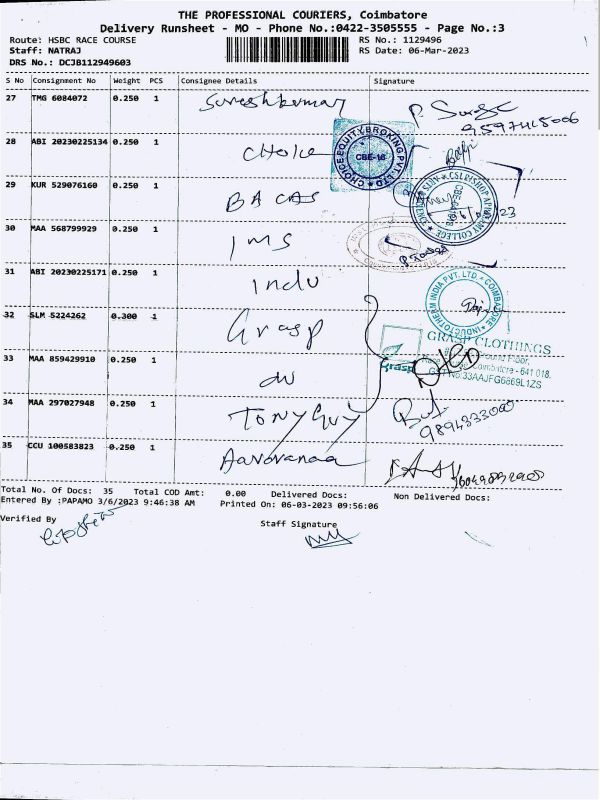 THE PROFESSIONAL COURIERS, Coimbatore
Delivery Runsheet - MO - Phone No.:0422-3505555 - Page No.:3
Route: HSBC RACE COURSE RS No.: 1129496
Staff: NATRAJ RS Date: 06-Mar-2023
DRS No.: DCJB112949603
S No Consignment No Weight PCS Consignee Details Signature
27 TMG 6084072 0.250 1 Sureshkumar
28 ABI 20230225134 0.250 1 Choice
CHOICE EQUITY BROKING PVT. LTD CBE-16
29 KUR 529076160 0.250 1 BACAS
30 MAA 568799929 0.250 1 IMS
31 ABI 20230225171 0.250 1 Indu
INDUCTOTHERM INDIA PVT. LTD. COIMBATORE
32 SLM 5224262 0.300 1 Grasp
GRASP CLOTHINGS
Floor,
Coimbatore - 641 018.
33AAJFG6869L1ZS
grasp
33 MAA 859429910 0.250 1 do
34 MAA 297027948 0.250 1 TONY GUY
35 CCU 100583823 0.250 1
Total No. Of Docs: 35 Total COD Amt: 0.00 Delivered Docs: Non Delivered Docs:
Entered By :PAPAMO 3/6/2023 9:46:38 AM Printed On: 06-03-2023 09:56:06
Verified By Staff Signature